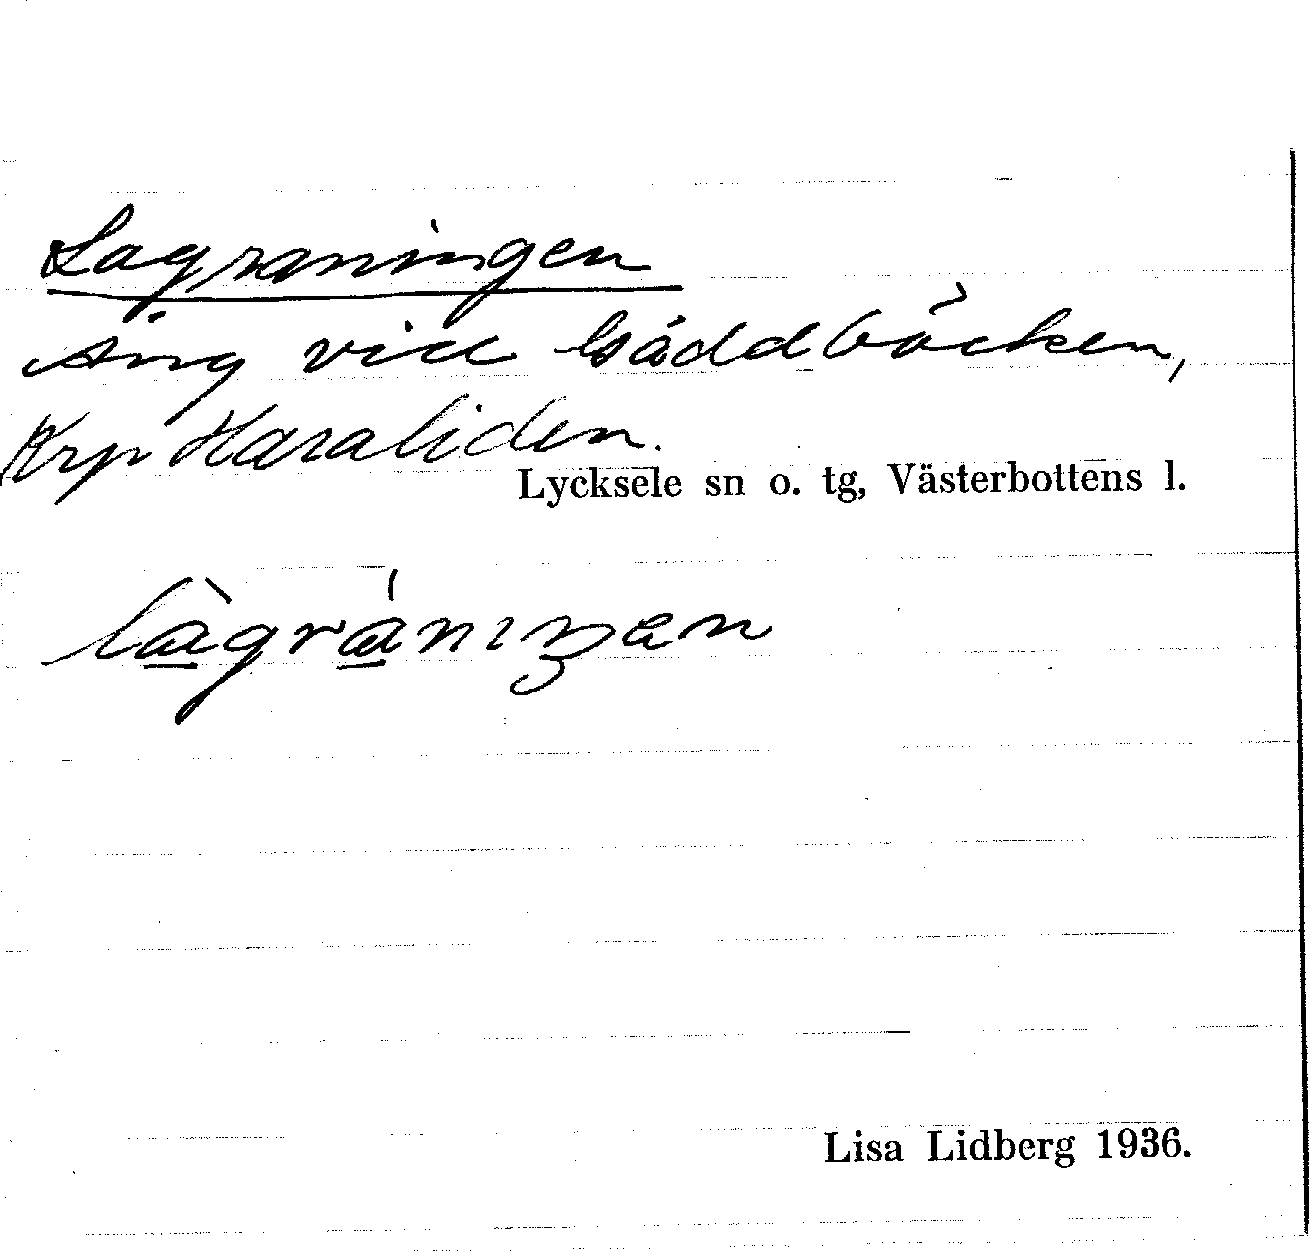 Lagraningen
Äng vid Gäddbäcken,
Krp Haraliden.
Lycksele sn o. tg, Västerbottens l.
Lisa Lidberg 1936.